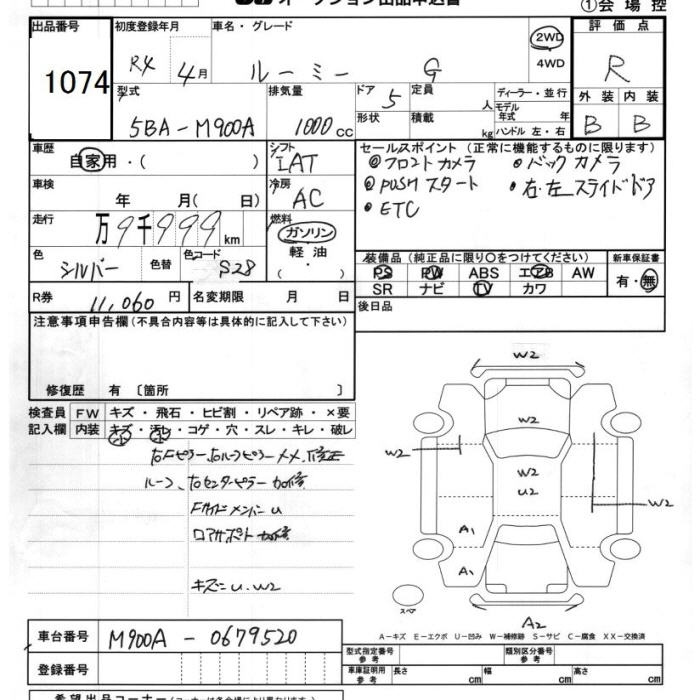 ①会場控
出品番号 初度登録年月 車名・グレード 2WD 評価点
1074 R4 4月 ルーミー G 4WD R
型式 排気量 ドア 定員 ディーラー・並行 外装 内装
5BA-M900A 1000cc 5 人 モデル年式 年 B B
形状 積載 kg ハンドル 左・右
車歴 自家用・( ) シフト IAT セールスポイント (正常に機能するものに限ります)
◎フロントカメラ •バックカメラ
車検 年 月( 日) 冷房 AC ◎PUSHスタート •右・左スライドドア
•ETC
走行 万9千999km 燃料 ガソリン
軽油・( )
色 シルバー 色替 色コード S28
装備品 (純正品に限り○をつけてください) 新車保証書
PS PW ABS エアB AW 有・無
SR ナビ TV カワ
R券 11,060円 名変期限 月 日 後日品
注意事項申告欄(不具合内容等は具体的に記入して下さい)
修復歴 有 〔箇所 〕
検査員 FW キズ・飛石・ヒビ割・リペア跡・×要
記入欄 内装 キズ・汚レ・コゲ・穴・スレ・キレ・破レ
右Fピラー、右ルーフピラー メメ、修正
ルーフ、右センターピラー 加修
Fサイドメンバー U
ロアサポート 加修
キズ U. W2
W2
W2
W2
W2
U2
W2
A1
A1
スペア
A2
A-キズ E-エクボ U-凹み W-補修跡 S-サビ C-腐食 XX-交換済
車台番号 M900A-0679520
登録番号
型式指定番号 参考 類別区分番号 参考
車庫証明用 参考 長さ cm 幅 cm 高さ cm